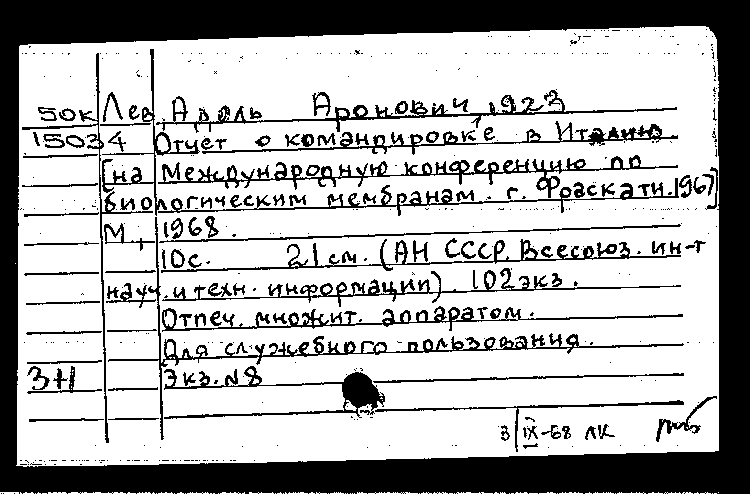 50к Лев, Адоль Аронович, 1923
15034 Отчет о командировке в Италию
[на Международную конференцию по
биологическим мембранам. г. Фраскати. 1967]
М., 1968.
10с. 21см. (АН СССР. Всесоюз. ин-т
науч. и техн. информации). 102экз.
Отпеч. множит. аппаратом.
Для служебного пользования.
ЗН Экз. №8
3/IX-68 ЛК